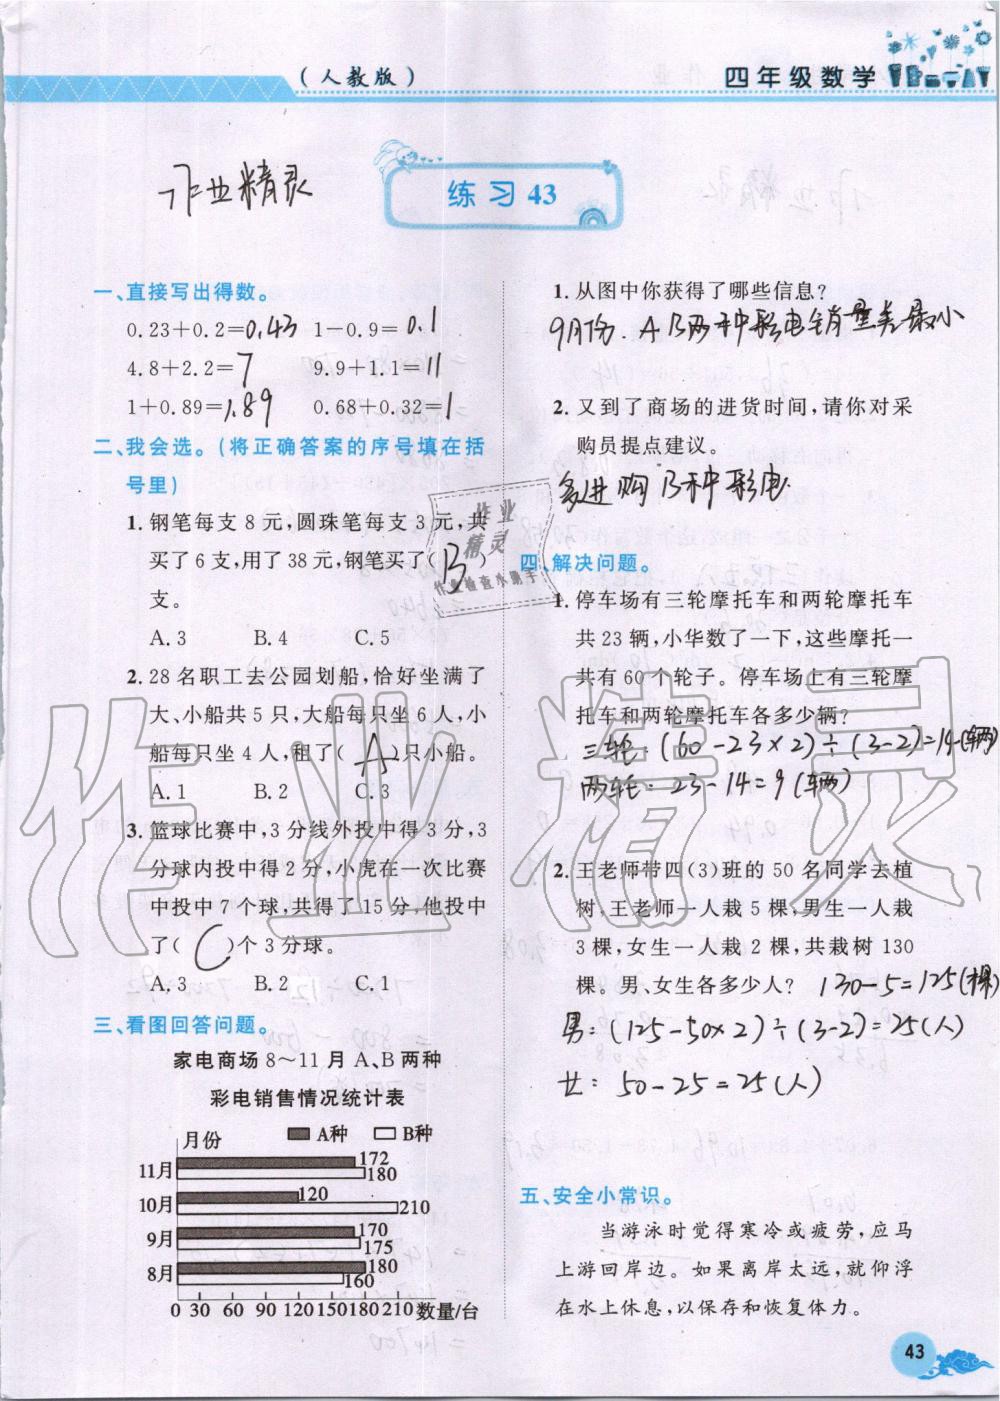 （人教版）
四年级数学
作业精灵
练习 43
一、直接写出得数。
0.23+0.2=0.43 1-0.9=0.1
4.8+2.2=7 9.9+1.1=11
1+0.89=1.89 0.68+0.32=1
二、我会选。(将正确答案的序号填在括
号里)
1. 钢笔每支 8 元,圆珠笔每支 3 元,共
买了 6 支,用了 38 元,钢笔买了( B )
支。
A. 3 B. 4 C. 5
2. 28 名职工去公园划船,恰好坐满了
大、小船共 5 只,大船每只坐 6 人,小
船每只坐 4 人,租了( A )只小船。
A. 1 B. 2 C. 3
3. 篮球比赛中,3 分线外投中得 3 分,3
分球内投中得 2 分,小虎在一次比赛
中投中 7 个球,共得了 15 分,他投中
了( C )个 3 分球。
A. 3 B. 2 C. 1
三、看图回答问题。
家电商场 8～11 月 A、B 两种
彩电销售情况统计表
月份 A种 B种
11月 172
180
10月 120
210
9月 170
175
8月 180
160
0 30 60 90 120 150 180 210 数量/台
1. 从图中你获得了哪些信息?
9月份.AB两种彩电销量差最小
2. 又到了商场的进货时间,请你对采
购员提点建议。
多进购B种彩电
作业
精灵
作业检查小助手
四、解决问题。
1. 停车场有三轮摩托车和两轮摩托车
共 23 辆,小华数了一下,这些摩托一
共有 60 个轮子。停车场上有三轮摩
托车和两轮摩托车各多少辆?
三轮:(60-23×2)÷(3-2)=14(辆)
两轮:23-14=9(辆)
2. 王老师带四(3)班的 50 名同学去植
树,王老师一人栽 5 棵,男生一人栽
3 棵,女生一人栽 2 棵,共栽树 130
棵。男、女生各多少人? 130-5=125(棵)
男:(125-50×2)÷(3-2)=25(人)
女:50-25=25(人)
五、安全小常识。
当游泳时觉得寒冷或疲劳,应马
上游回岸边。如果离岸太远,就仰浮
在水上休息,以保存和恢复体力。
43
作业精灵